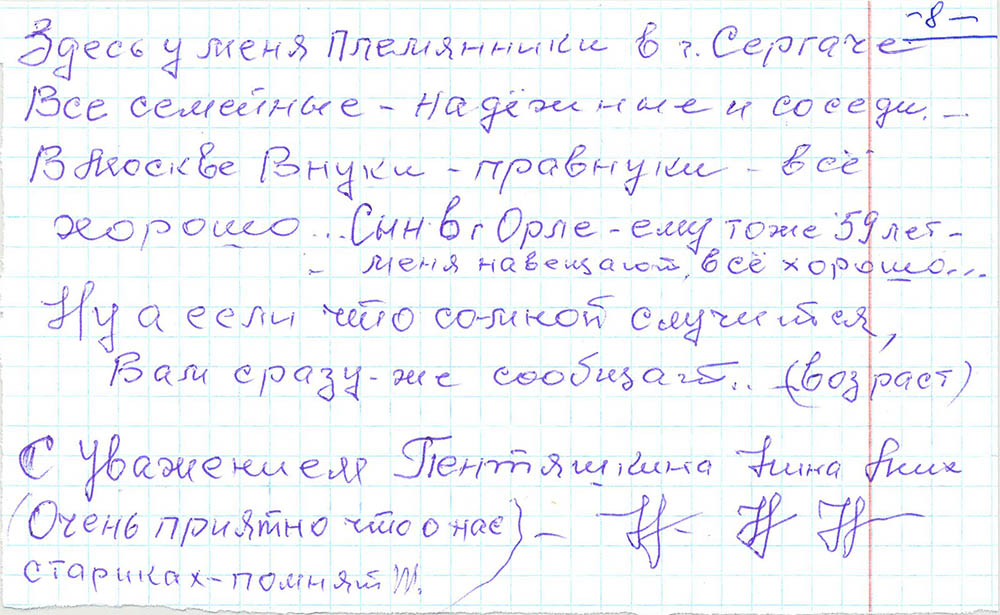 -8-
Здесь у меня племянники в г. Сергаче
Все семейные - надёжные и соседи. -
В Москве Внуки - правнуки - всё
хорошо... Сын в г Орле - ему тоже 59 лет -
- меня навещают, всё хорошо...
Ну а если что со мной случится,
Вам сразу-же сообщат.. - (возраст)
С Уважением Пентяшкина Нина
(Очень приятно что о нас) -
стариках - помнят!!!.